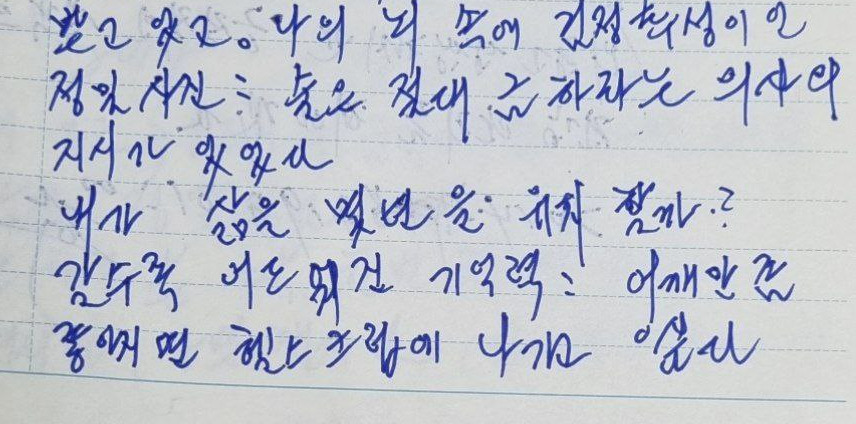 받고 있고. 나의 뇌 속에 검정 색이
정밀 사진: 술은 절대 금하라는 의사의
지시가 있었다
내가 삶을 몇 년을 유지 할까.?
갈수록 기억력: 어깨만 좀
좋아지면 헬스크럽에 나가고 싶다